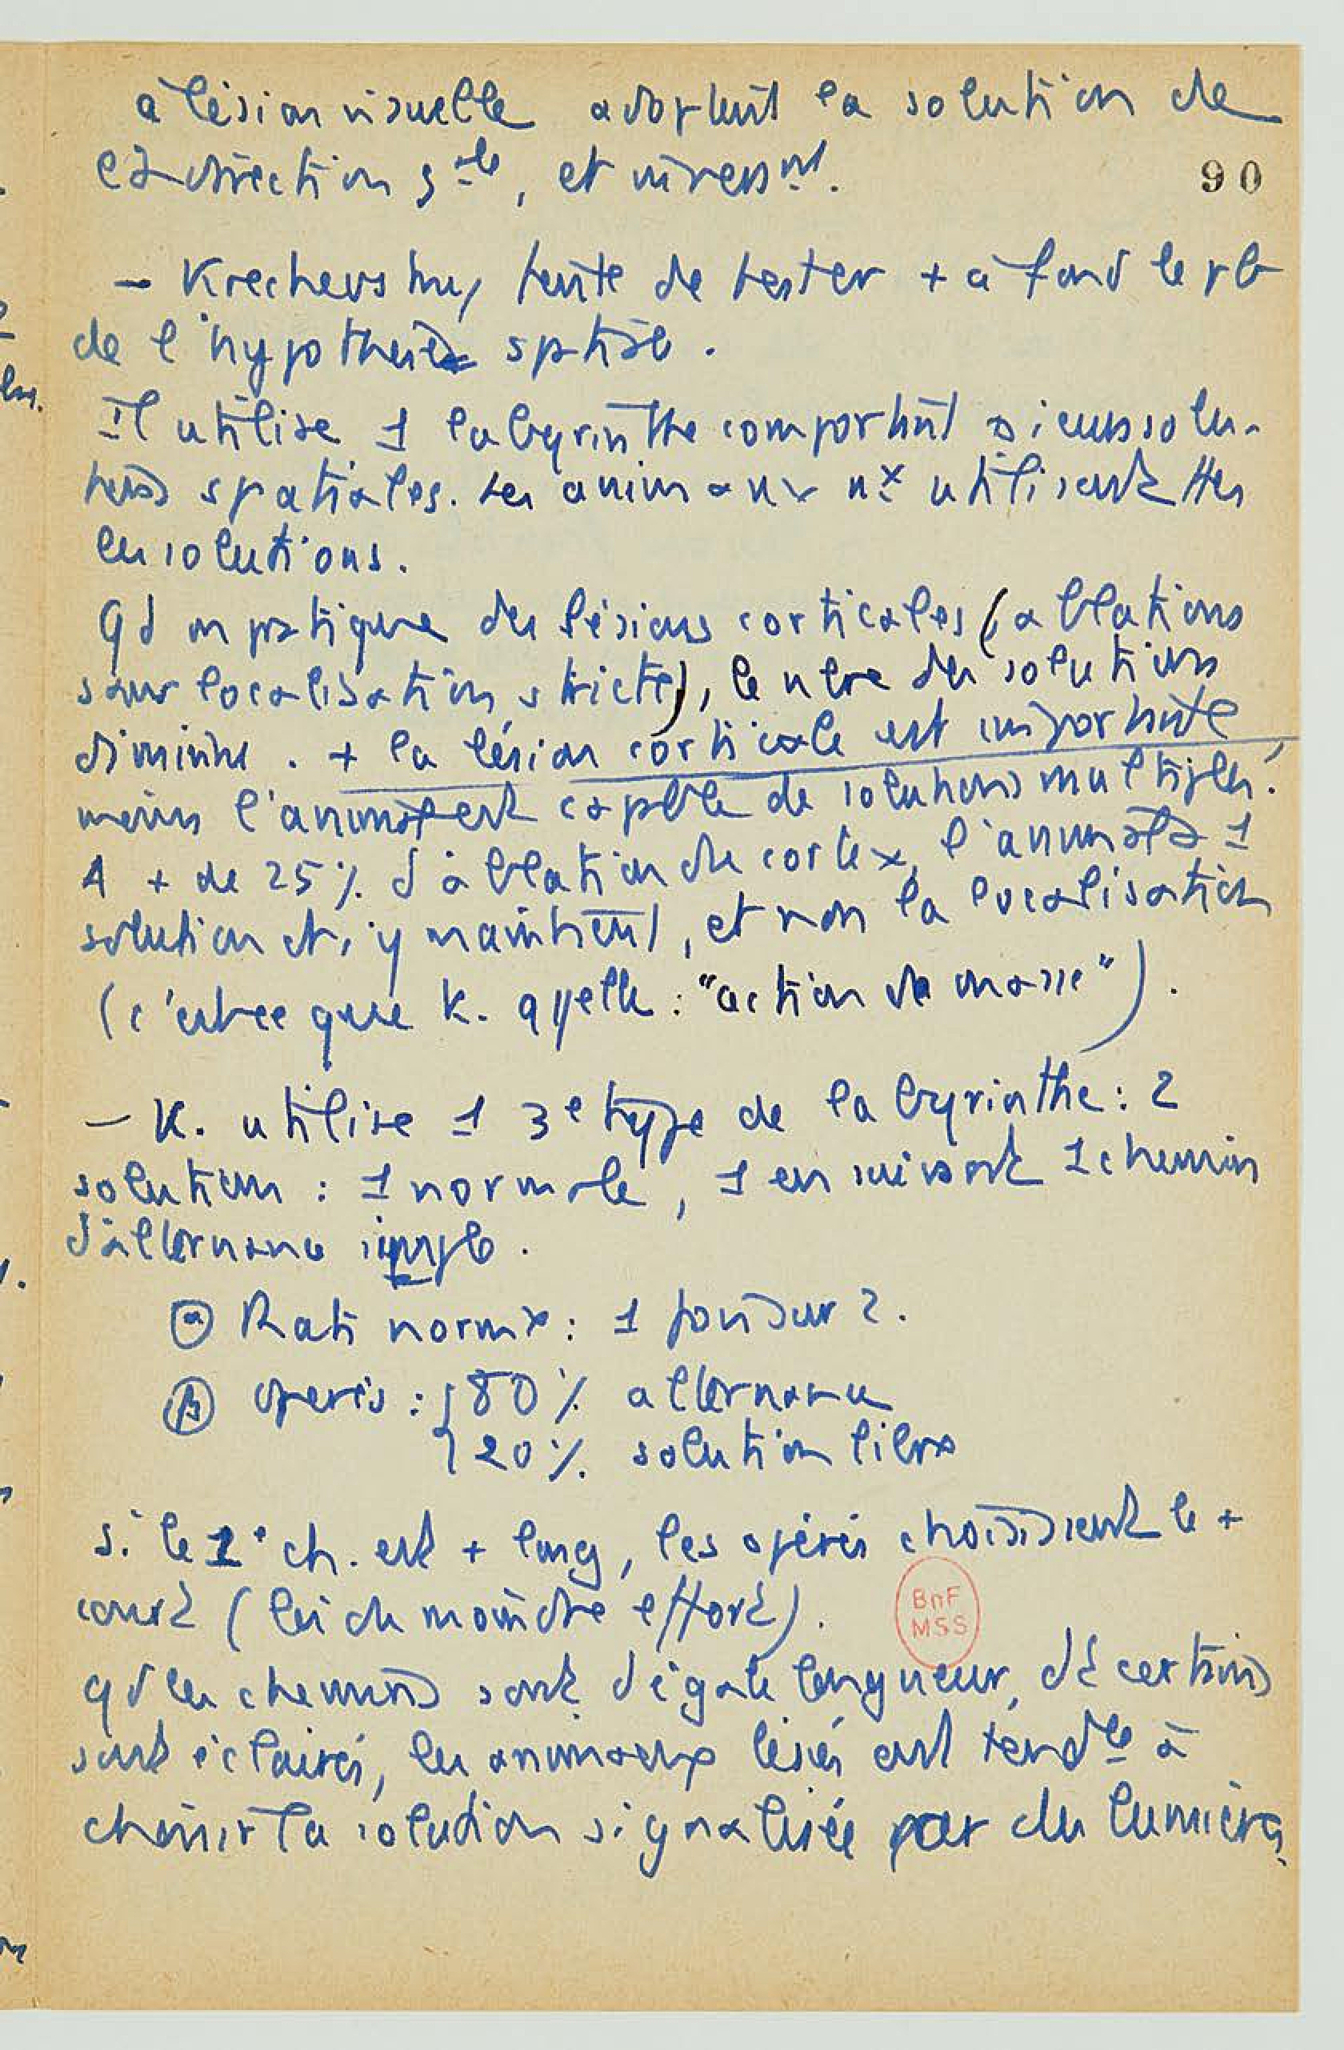 à lésion visuelle adoptent la solution de
la direction gale, et inversnt.
90
– Krechevsky tente de tester + à fond le pb
de l'hypothèse sptiale.
Il utilise 1 labyrinthe comportant plusieurs solu-
tions spatiales. Les animaux nx utilisent ttes
les solutions.
Qd on pratique des lésions corticales (ablations
sans localisation stricte), le nbre des solutions
diminue. + la lésion corticale est importante,
moins l'animal est capble de solutions multiples.
A + de 25% d'ablation du cortex, l'animal a 1
solution et s'y maintient, et non la localisation
(c'est ce que K. appelle : "action de masse").
– K. utilise 1 3e type de labyrinthe : 2
solutions : 1 normale, 1 en suivant 1 chemin
d'alternance simple.
α Rats normx : 1 fois sur 2.
β opérés : { 80% alternance
{ 20% solution libre
Si le 1e ch. est + long, les opérés choisissent le +
court (loi du moindre effort).
qd les chemins sont d'égale longueur, dt certains
sont éclairés, les animaux lésés ont tendce à
choisir la solution signalisée par du lumière.
BnF
MSS